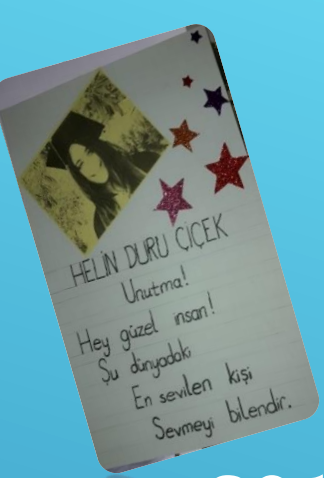 HELİN DURU ÇİÇEK
Unutma!
Hey güzel insan!
Şu dünyadaki
En sevilen kişi
Sevmeyi bilendir.